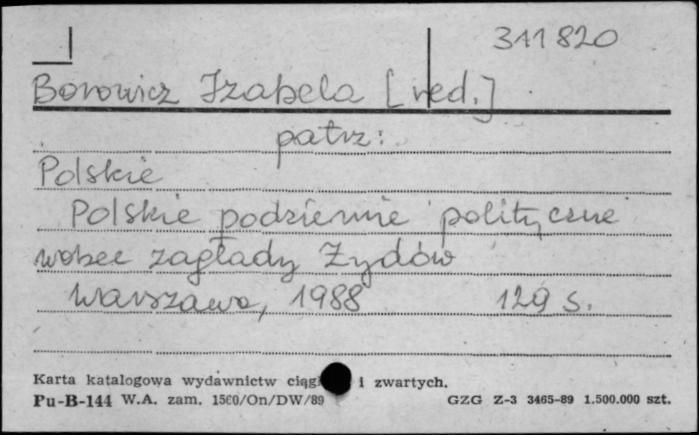 311820
Borowicz Izabela [red.]
patrz:
Polskie
Polskie podziemie polityczne
wobec zagłady Żydów
Warszawa, 1988 129 s.
Karta katalogowa wydawnictw i zwartych.
Pu-B-144 W.A. zam. 1560/On/DW/89 GZG Z-3 3465-89 1.500.000 szt.